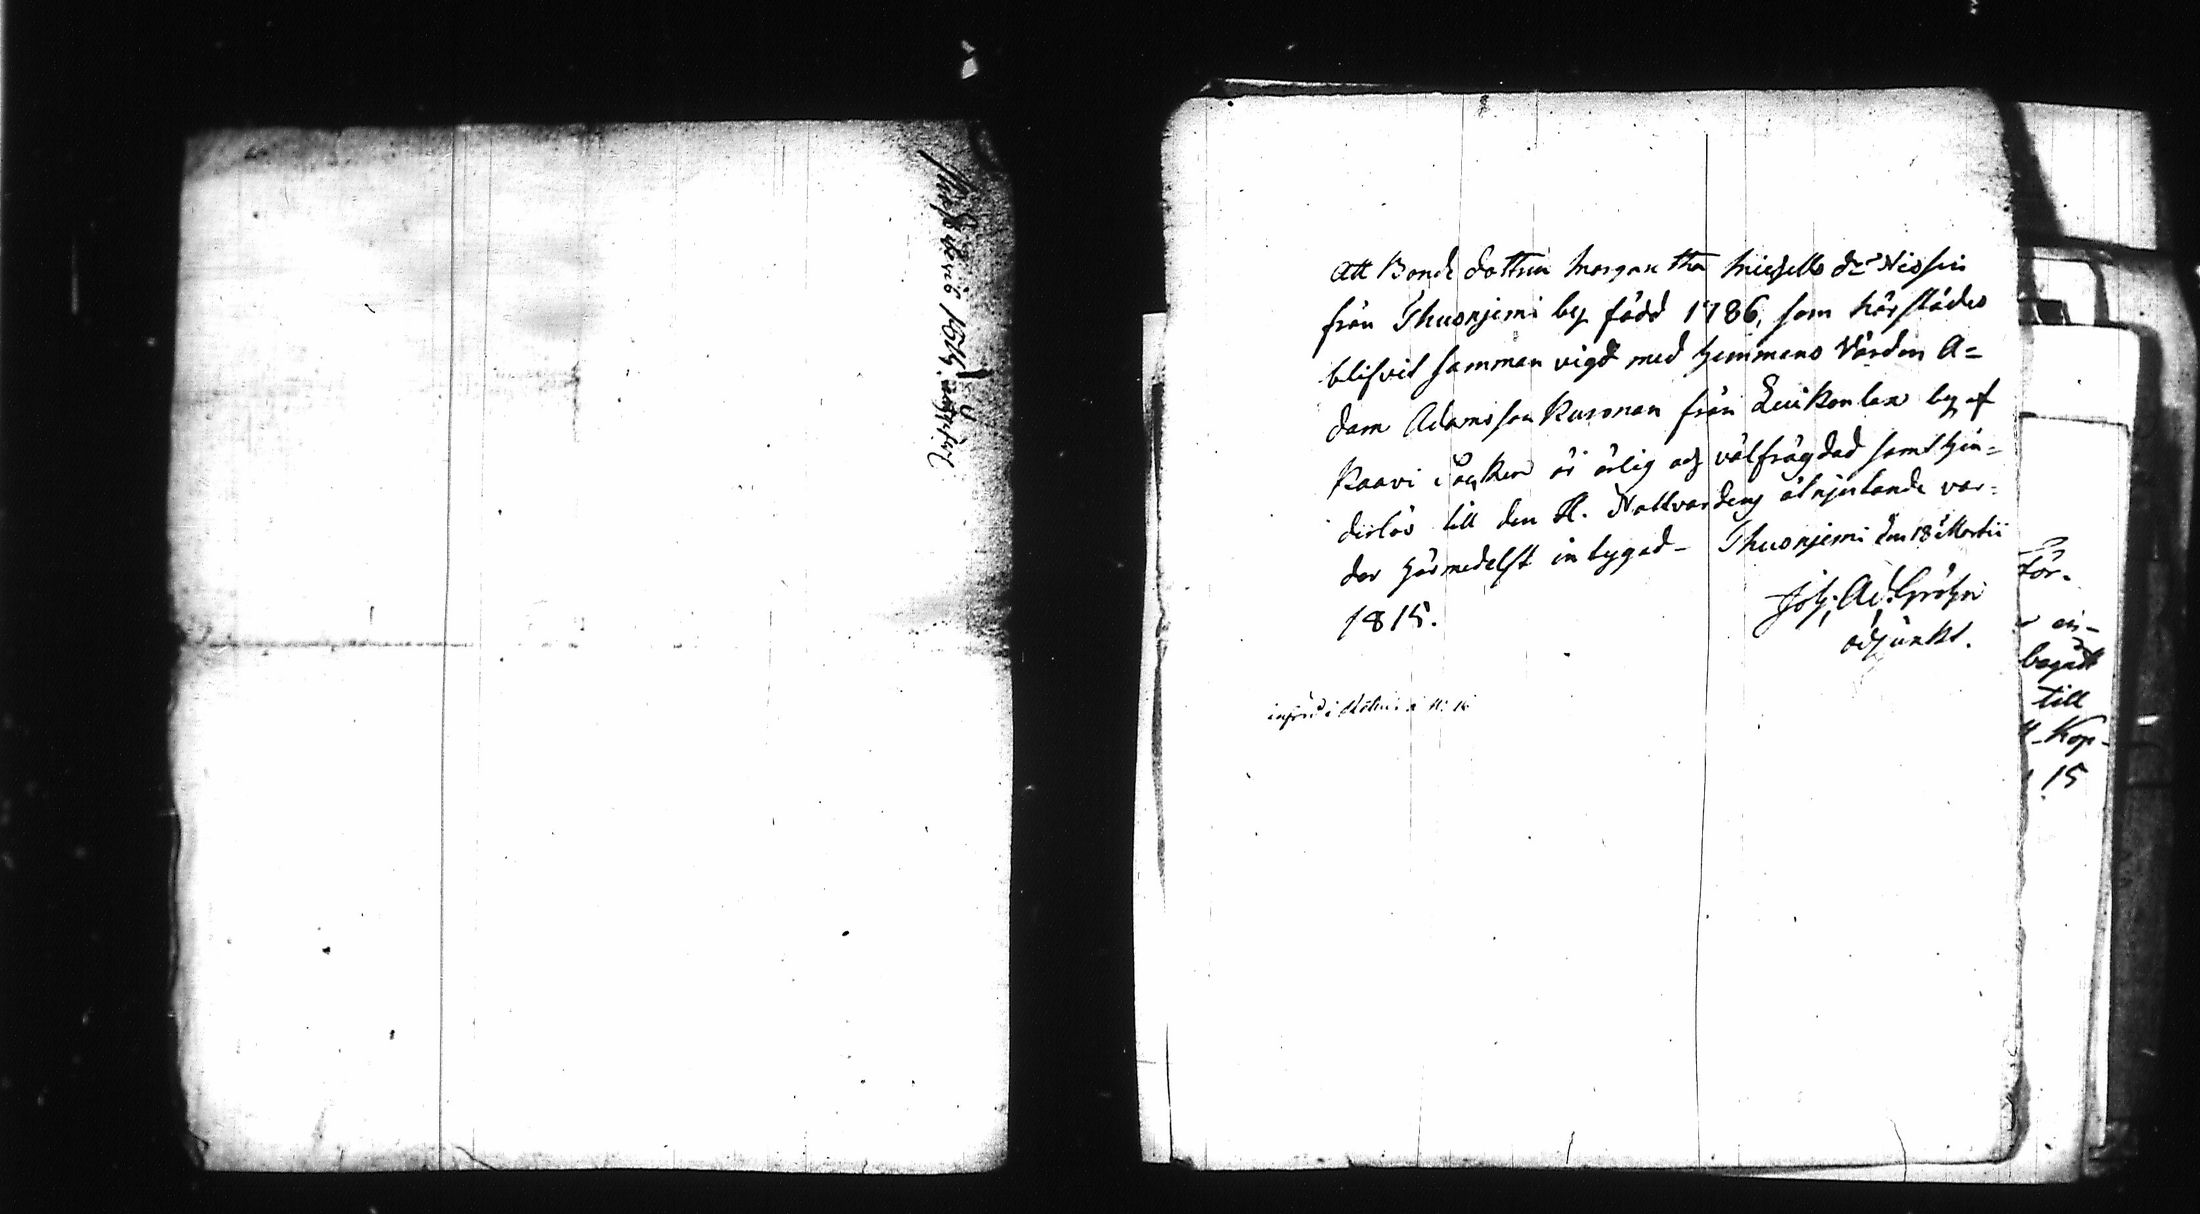 Att Bonde dottren Margaretha Michels dr Nissin
från Thusnjemi by född 1786, som härstädes
blifvit samman vigd med Hemmans Värden A=
dam Adamsson Kusonen från Luikonlax by af
Kaavi Socken är ärlig och välfrägdad samt hin=
derlös till den H. Nattvardens åtnjutande var=
der härmedelst intygad - Thusnjemi den 18 Martii
1815.
Joh: Ad: Gröhn
adjunkt.
införd i
för.
till
15